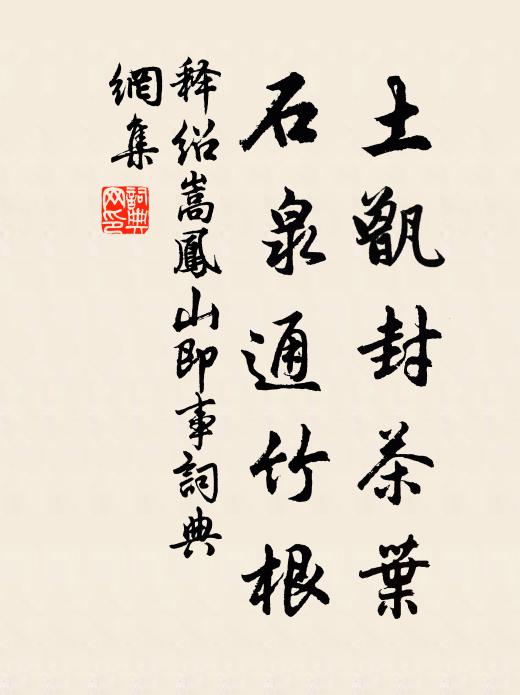 土甑封茶葉
石泉通竹根
释紹嵩鳳山即事詞典
網集
詞典網印